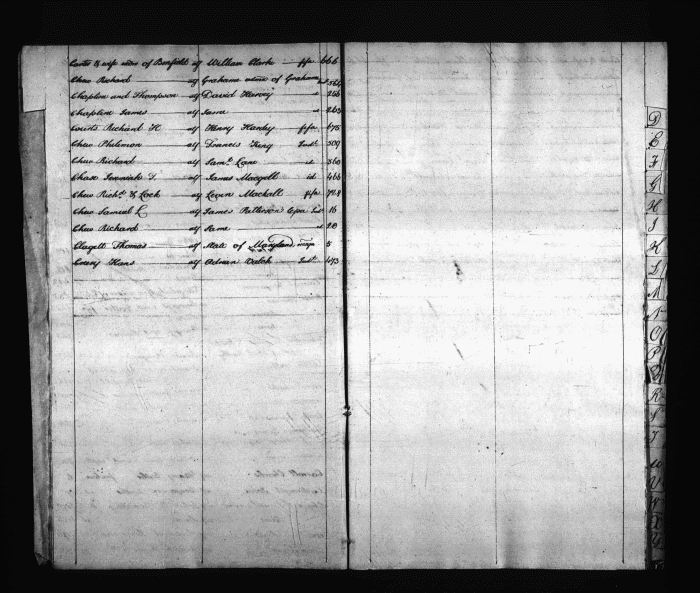 Carter & wife adms of Benfield ag William Clarke fifa 666
Chew Richard ag Grahame admx of Graham
Chaplin and Thompson ag David Harvey id 256
Chapline James ag Same id 263
Courts Richard H ag Henry Hanby fifa 675
Chew Philemon ag Francis King Inst 509
Chew Richard ag Saml Lane id 560
Chase Jeremiah T ag James Macgill id 466
Chew Richd & Lock ag Leven Mackall fifa
Chew Samuel L ag James Patterson 16
Chew Richard ag Same 20
Clagett Thomas ag State of Maryland 5
Creery Hans ag Adrian Valck Inst 493
D
E
F
G
H
I
K
L
M
N
O
P
Q
R
S
T
U
V
W
X
Y